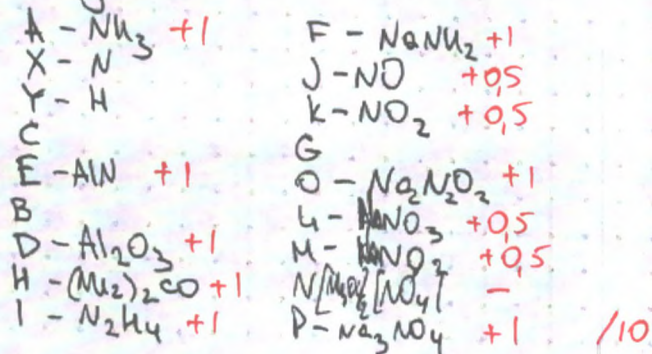 A - NH₃ +1
X - N
Y - H
C
E - AlN +1
B
D - Al₂O₃ +1
H - (NH₂)₂CO +1
I - N₂H₄ +1
F - NaNH₂ +1
J - NO +0,5
K - NO₂ +0,5
G
O - Na₂N₂O₂ +1
L - NO₃ +0,5
M - NO₂ +0,5
N [NO₄] -
P - Na₃NO₄ +1 /10